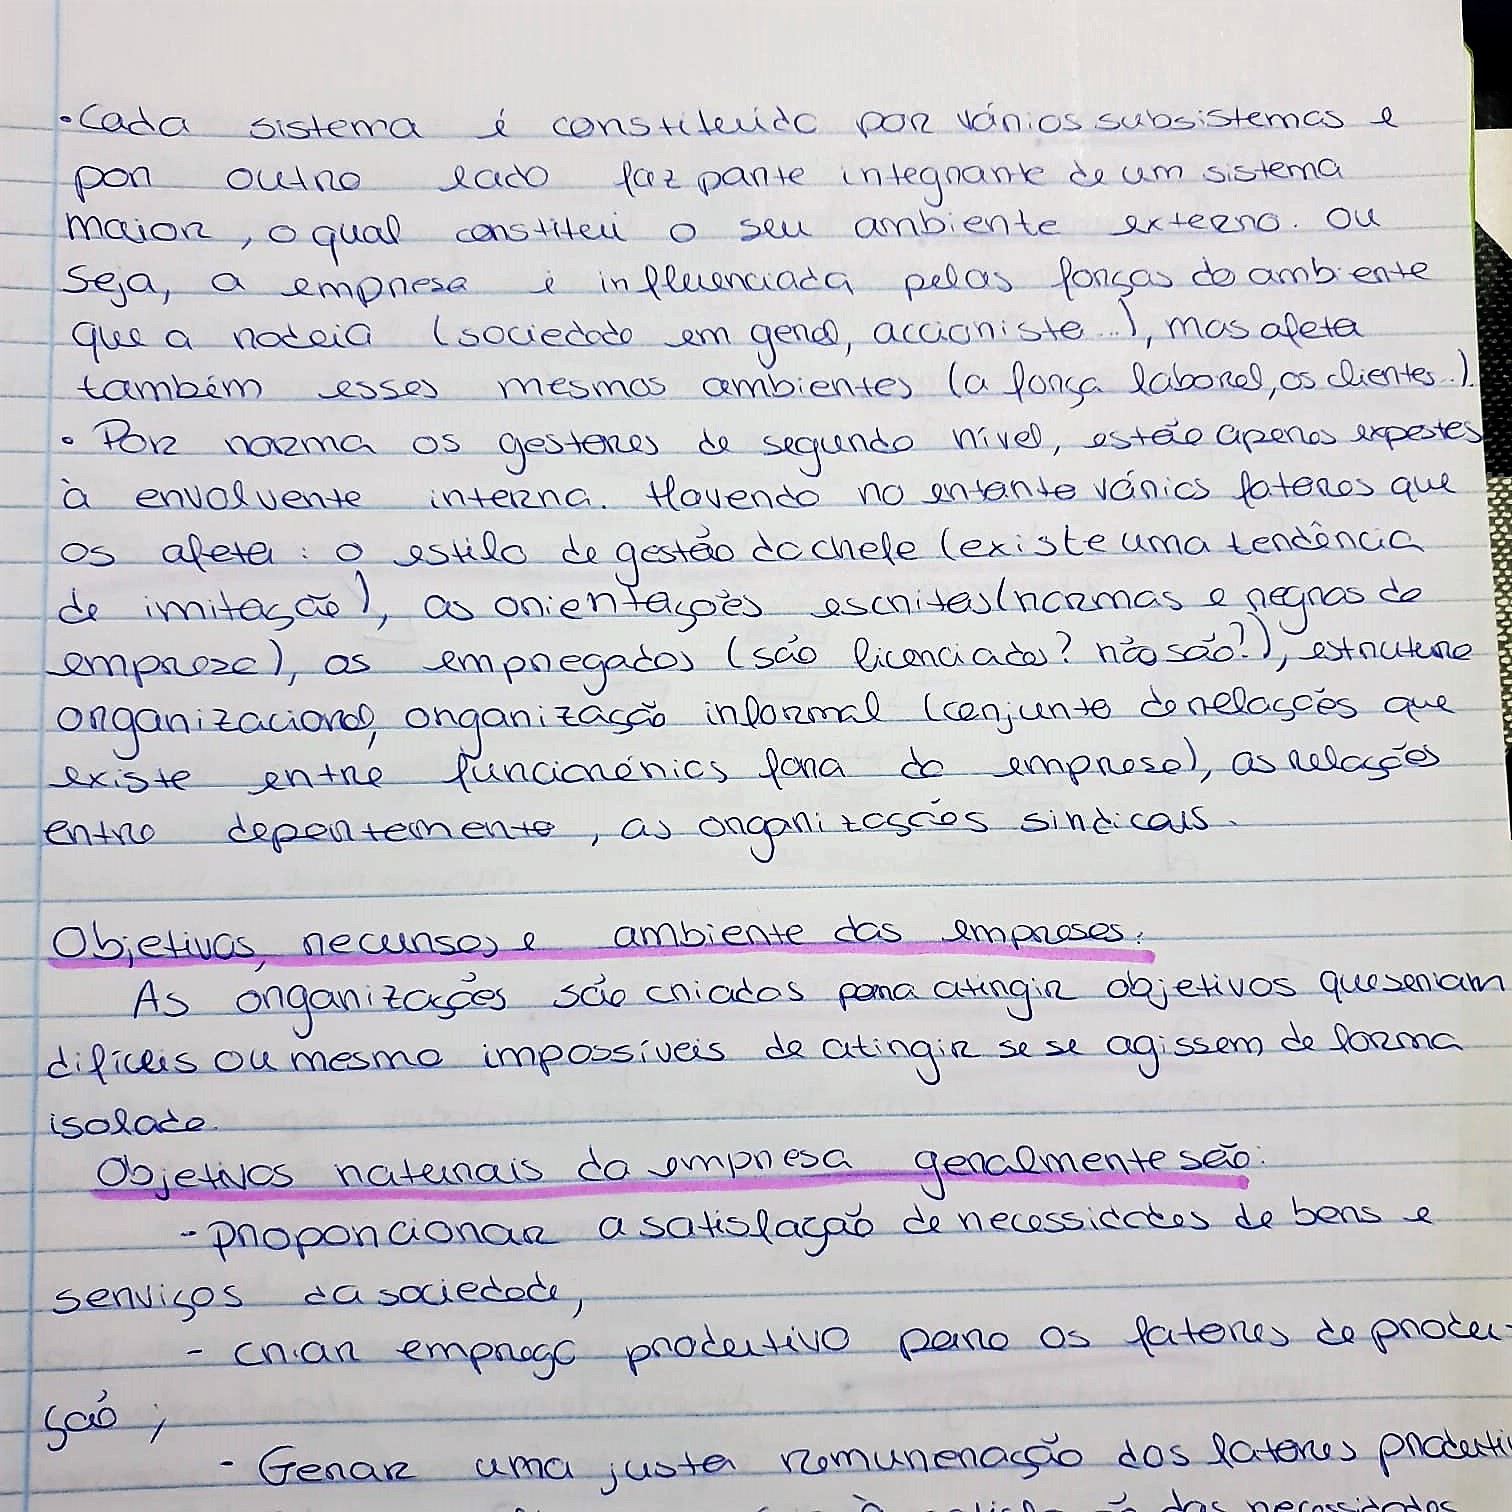 • Cada sistema é constituído por vários subsistemas e
por outro lado faz parte integrante de um sistema
maior, o qual constitui o seu ambiente externo. Ou
seja, a empresa é influenciada pelas forças do ambiente
que a rodeia (sociedade em geral, accionista...), mas afeta
também esses mesmos ambientes (a força laboral, os clientes..).
• Por norma os gestores de segundo nível, estão apenas expostos
à envolvente interna. Havendo no entanto vários fatores que
os afeta: o estilo de gestão do chefe (existe uma tendência
de imitação), as orientações escritas (normas e regras da
empresa), os empregados (são licenciados? não são?), estrutura
organizacional, organização informal (conjunto de relações que
existe entre funcionários fora da empresa), as relações
entre , as organizações sindicais.
Objetivos, recursos e ambiente das empresas:
As organizações são criadas para atingir objetivos que seriam
difíceis ou mesmo impossíveis de atingir se se agissem de forma
isolada.
Objetivos naturais da empresa geralmente são:
- proporcionar a satisfação de necessidades de bens e
serviços da sociedade,
- criar emprego produtivo para os fatores de produ-
ção;
- Gerar uma justa remuneração dos fatores produti
das necessidades